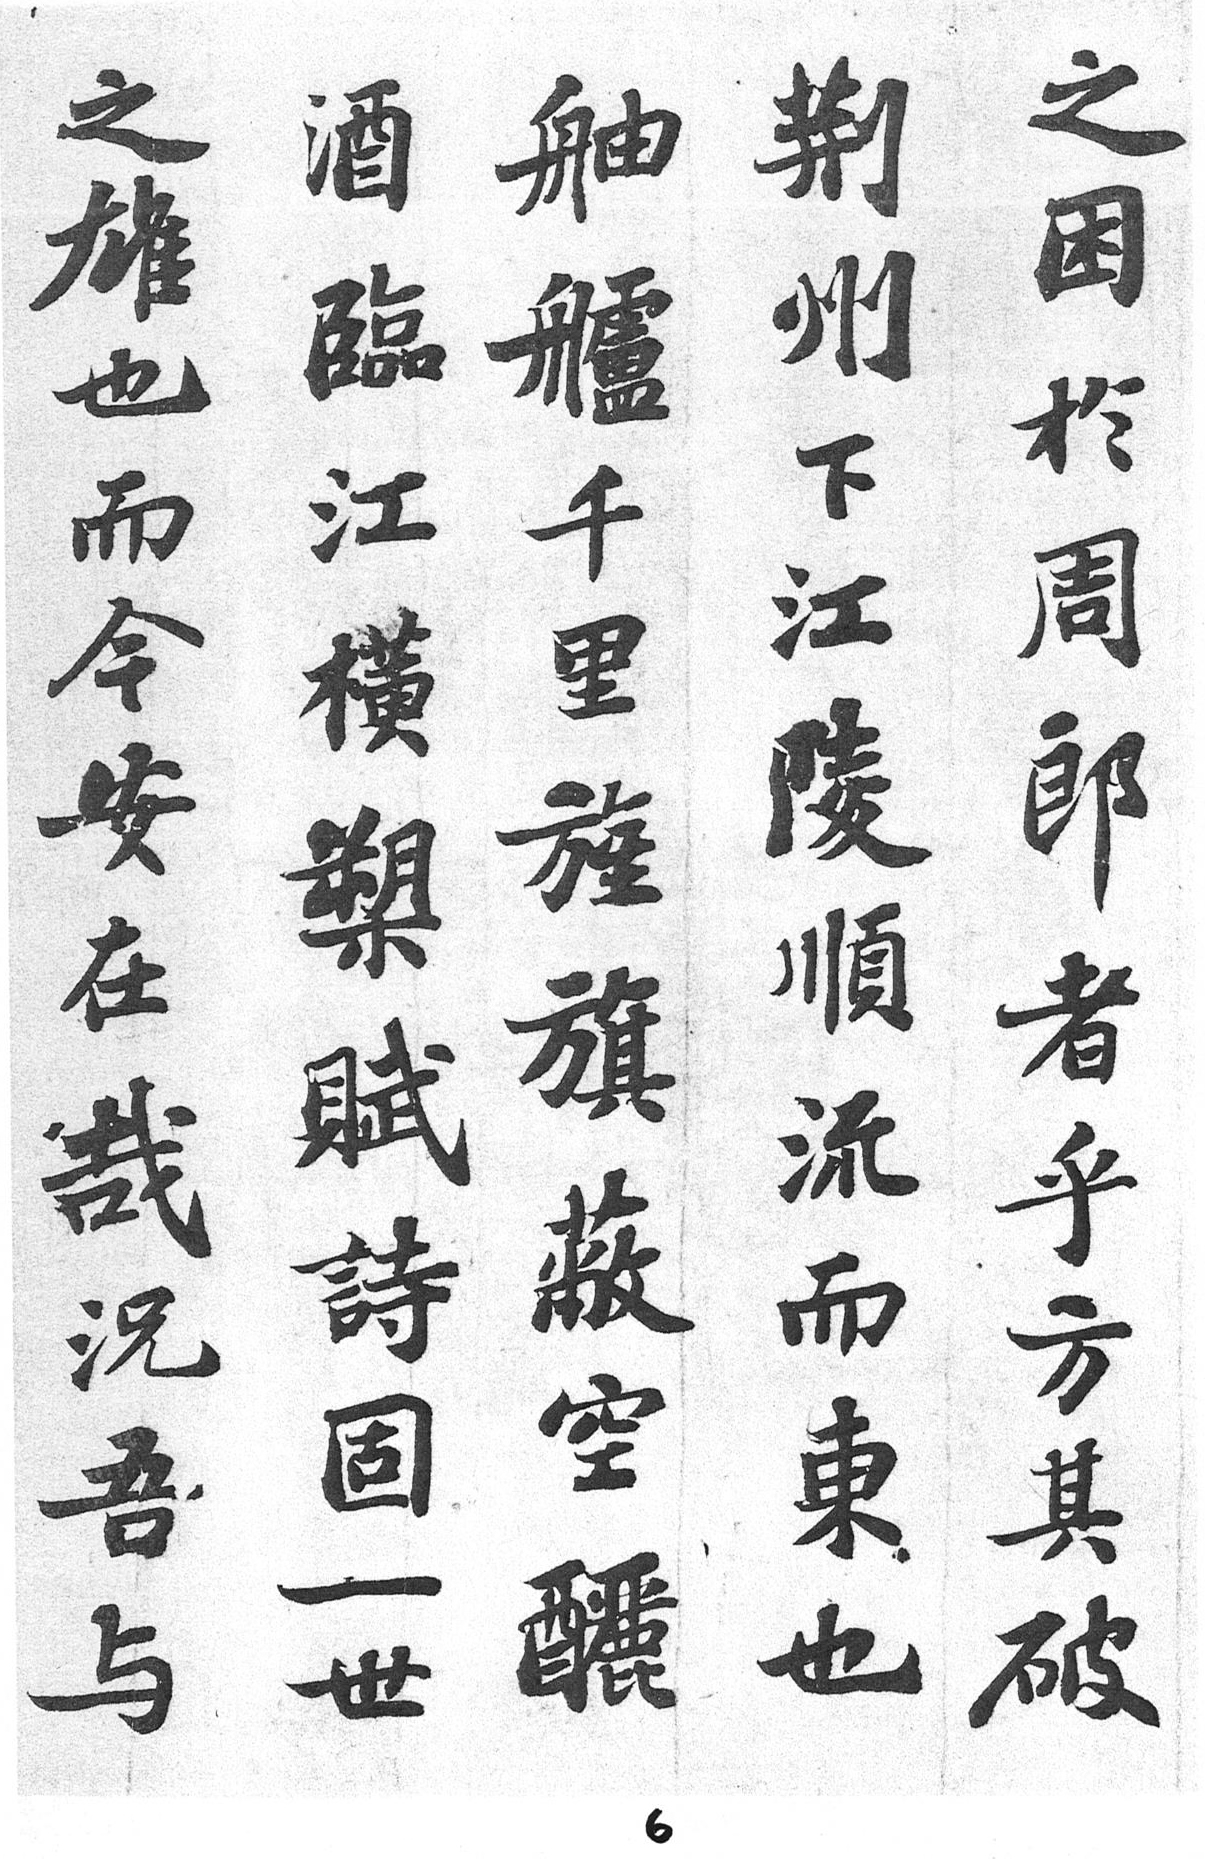 之困於周郎者乎方其破
荆州下江陵順流而東也
舳艫千里旌旗蔽空釃
酒臨江橫槊賦詩固一世
之雄也而今安在哉况吾与
6